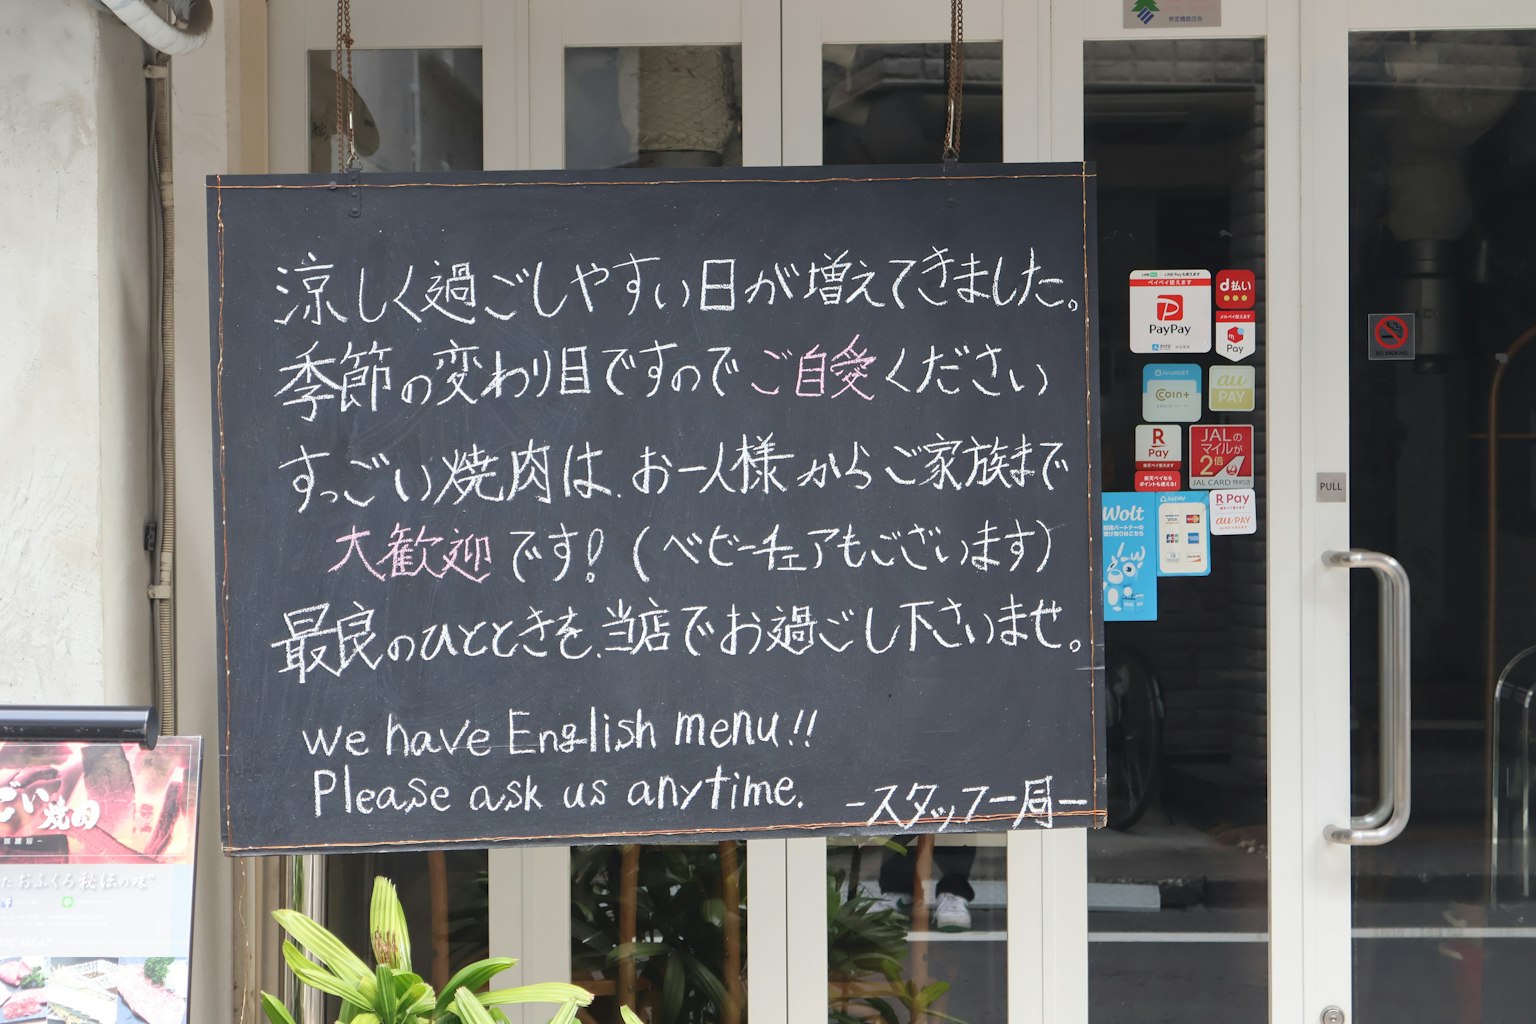 涼しく過ごしやすい日が増えてきました。
季節の変わり目ですのでご自愛ください
すっごい焼肉は、お一人様からご家族まで
大歓迎です!(ベビーチェアもございます)
最良のひとときを、当店でお過ごし下さいませ。
We have English menu!!
Please ask us anytime.
-スタッフ一同-
ペイペイ使えます
PayPay
d払い
メルペイ使えます
Pay
Coin+
au PAY
R Pay
JALのマイルが2倍
JAL CARD 特約店
Wolt
R Pay
au PAY
VISA
JCB
NO SMOKING
PULL
ごい焼肉
おふくろ秘伝の味
MEAT